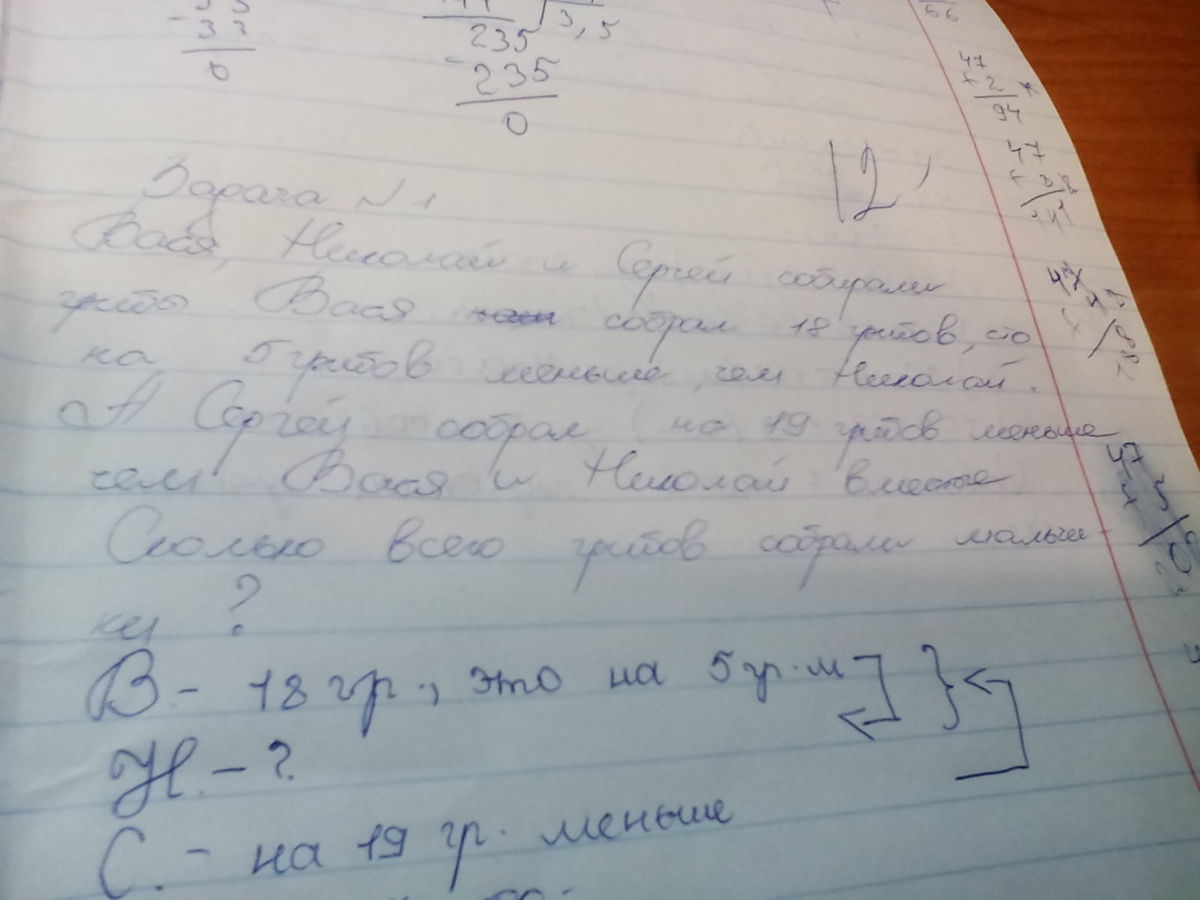 33
- 33
0
235 3,5
- 235
0
66
47
+ 2
94
47
12,
Задача N 1
Вася, Николай и Сергей собирали
грибы Вася собрал 18 грибов, это
на 5 грибов меньше, чем Николай.
А Сергей собрал на 19 грибов меньше
чем Вася и Николай вместе
Сколько всего грибов собрали мальчи
ки ?
В - 18 гр., это на 5 гр. м
Н. - ?
С. - на 19 гр. меньше